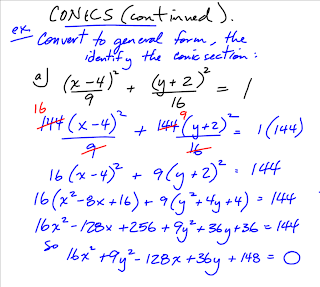 CONICS (continued).
ex Convert to general form, the
identify the conic section:
a) (x-4)²/9 + (y+2)²/16 = 1
16 144(x-4)²/9 + 144 9(y+2)²/16 = 1(144)
16(x-4)² + 9(y+2)² = 144
16(x²-8x+16) + 9(y²+4y+4) = 144
16x²-128x+256+9y²+36y+36 = 144
so
16x²+9y²-128x+36y+148 = 0